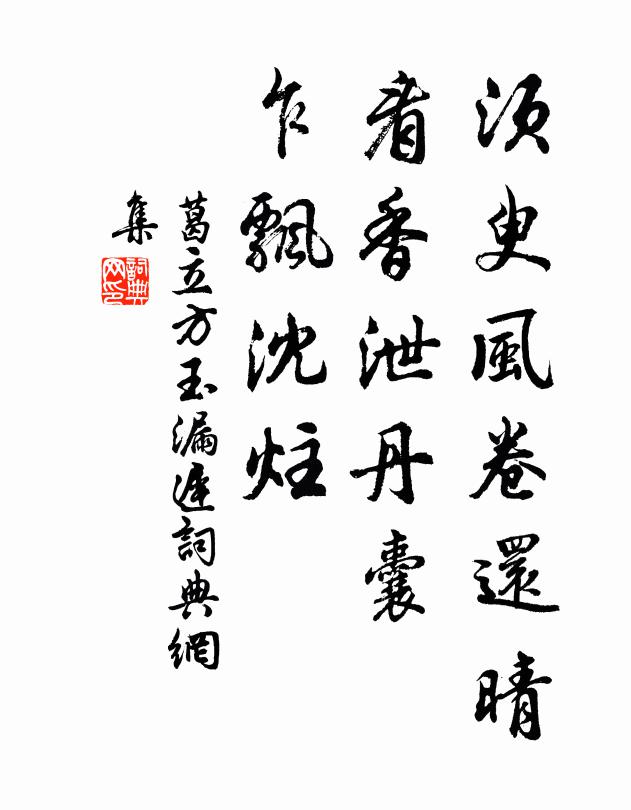 須臾風卷還晴
看香泄丹囊
乍飄沈炷
葛立方玉漏遲詞典網
集
詞典網